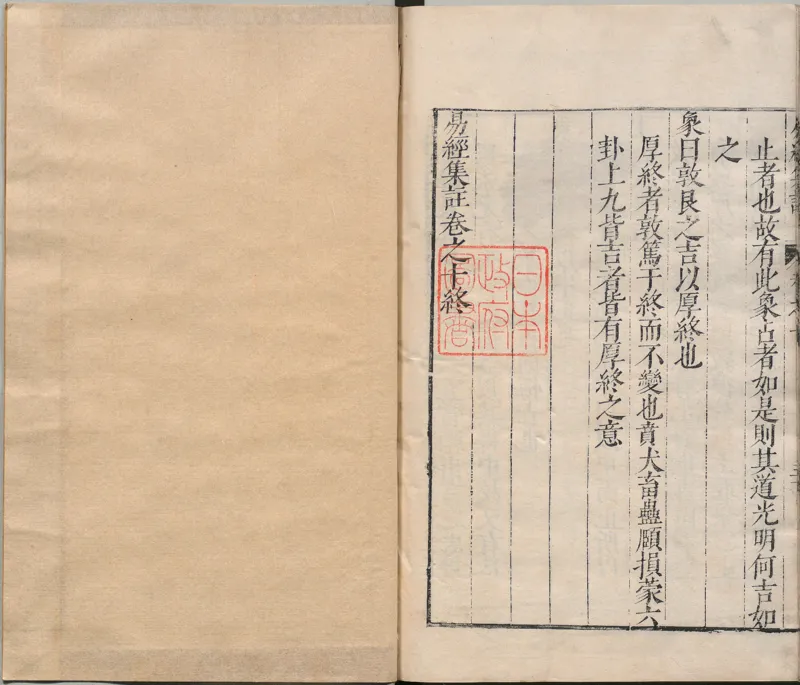 止者也故有此象占者如是則其道光明何吉如
之
象曰敦艮之吉以厚終也
厚終者敦篤于終而不變也賁犬畜蠱頤損蒙六
卦上九皆吉者皆有厚終之意
易經集註卷之十終
日本
政府
圖書